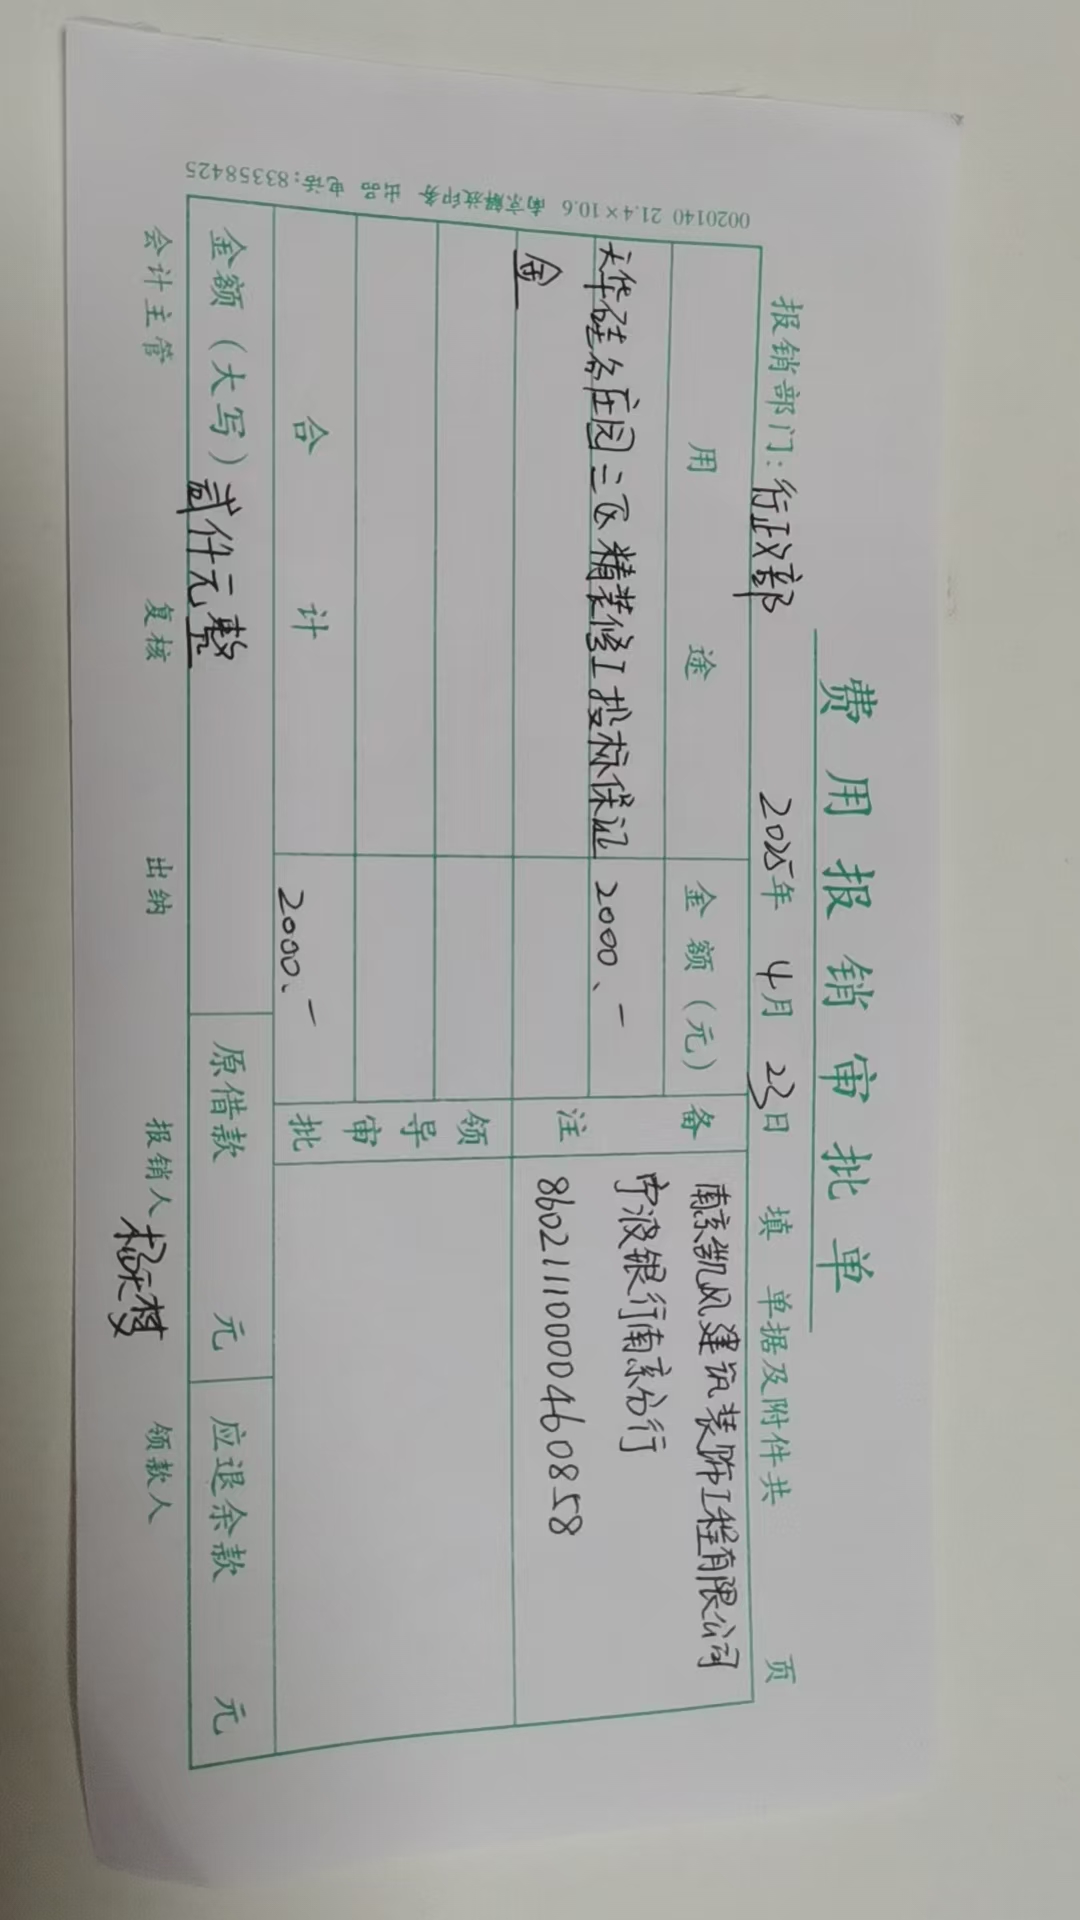 费用报销审批单
报销部门：行政部 2025年 4月 23日 填 单据及附件共 页
用途 金额（元） 备注
天华硅谷庄园二区精装修工投标保证 2000、一
金
南京凯风建筑装饰工程有限公司
宁波银行南京分行
86021110000460858
领导审批
合计 2000、一
金额（大写）贰仟元整 原借款 元 应退余款 元
会计主管 复核 出纳 报销人 领款人
0020140 21.4×10.6 南京解放印务 出品 电话：83358425